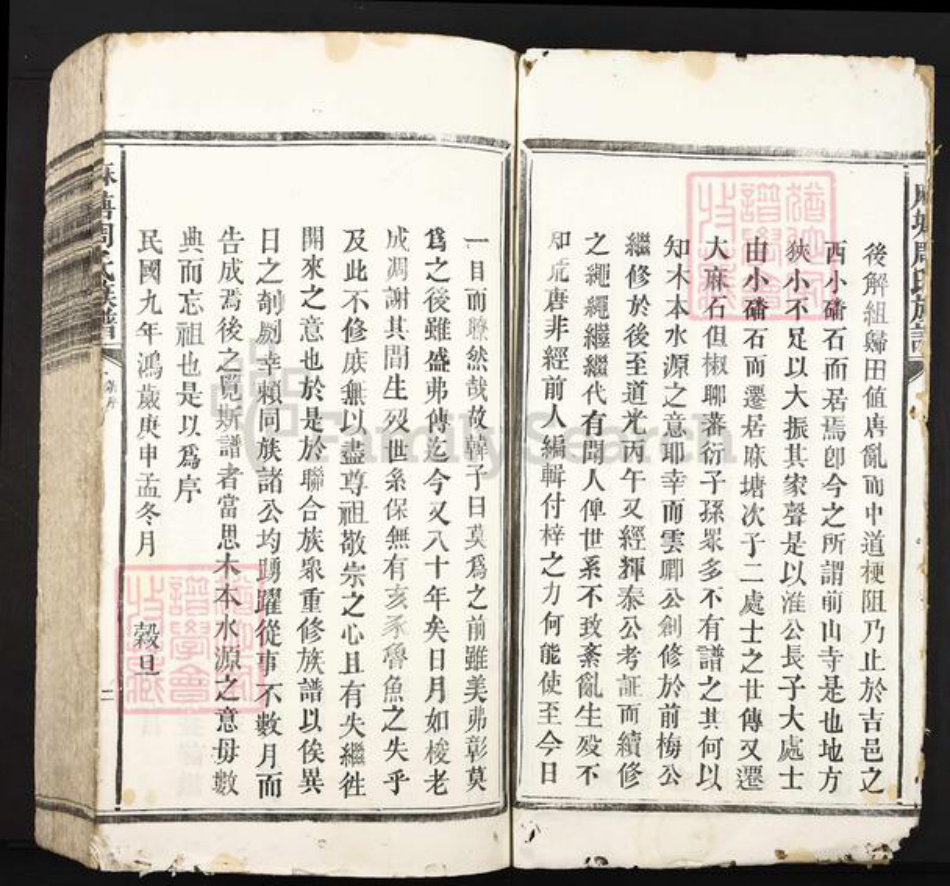 周氏族譜
後解組歸田值唐亂而中道梗阻乃止於吉邑之
西小礚石而居焉卽今之所謂前山寺是也地方
狹小不足以大振其家聲是以淮公長子大處士
由小礚石而遷居麻塘次子二處士之廿傳又遷
大麻石但椒聊蕃衍子孫眾多不有譜之其何以
知木本水源之意耶幸而雲卿公創修於前梅公
繼修於後至道光丙午又經輝泰公考証而續修
之繩繩繼繼代有聞人俾世系不致紊亂生歿不
知荒唐非經前人編輯付梓之力何能使至今日
一目而瞭然哉故韓子曰莫爲之前雖美弗彰莫
爲之後雖盛弗傳迄今又八十年矣日月如梭老
成凋謝其間生歿世系保無有亥豕魯魚之失乎
及此不修庶無以盡尊祖敬宗之心且有失繼徃
開來之意也於是於聯合族眾重修族譜以俟異
日之剞劂幸賴同族諸公均踴躍從事不數月而
告成焉後之覽斯譜者當思木本水源之意毋數
典而忘祖也是以爲序
民國九年鴻歲庚申孟冬月 穀旦
周氏族譜
二
譜學會
收藏
譜學會
收藏
FamilySearch